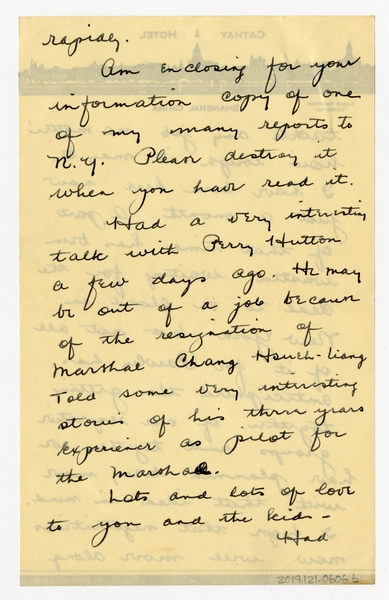 rapidly.
Am enclosing for your
information copy of one
of my many reports to
N.Y. Please destroy it
when you have read it.
Had a very interesting
talk with Perry Hutton
a few days ago. He may
be out of a job because
of the resignation of
Marshal Chang Hsueh-liang
Told some very interesting
stories of his three years
experience as pilot for
the Marshal.
Lots and lots of love
to you and the kids –
Had
2019.121.0606 b